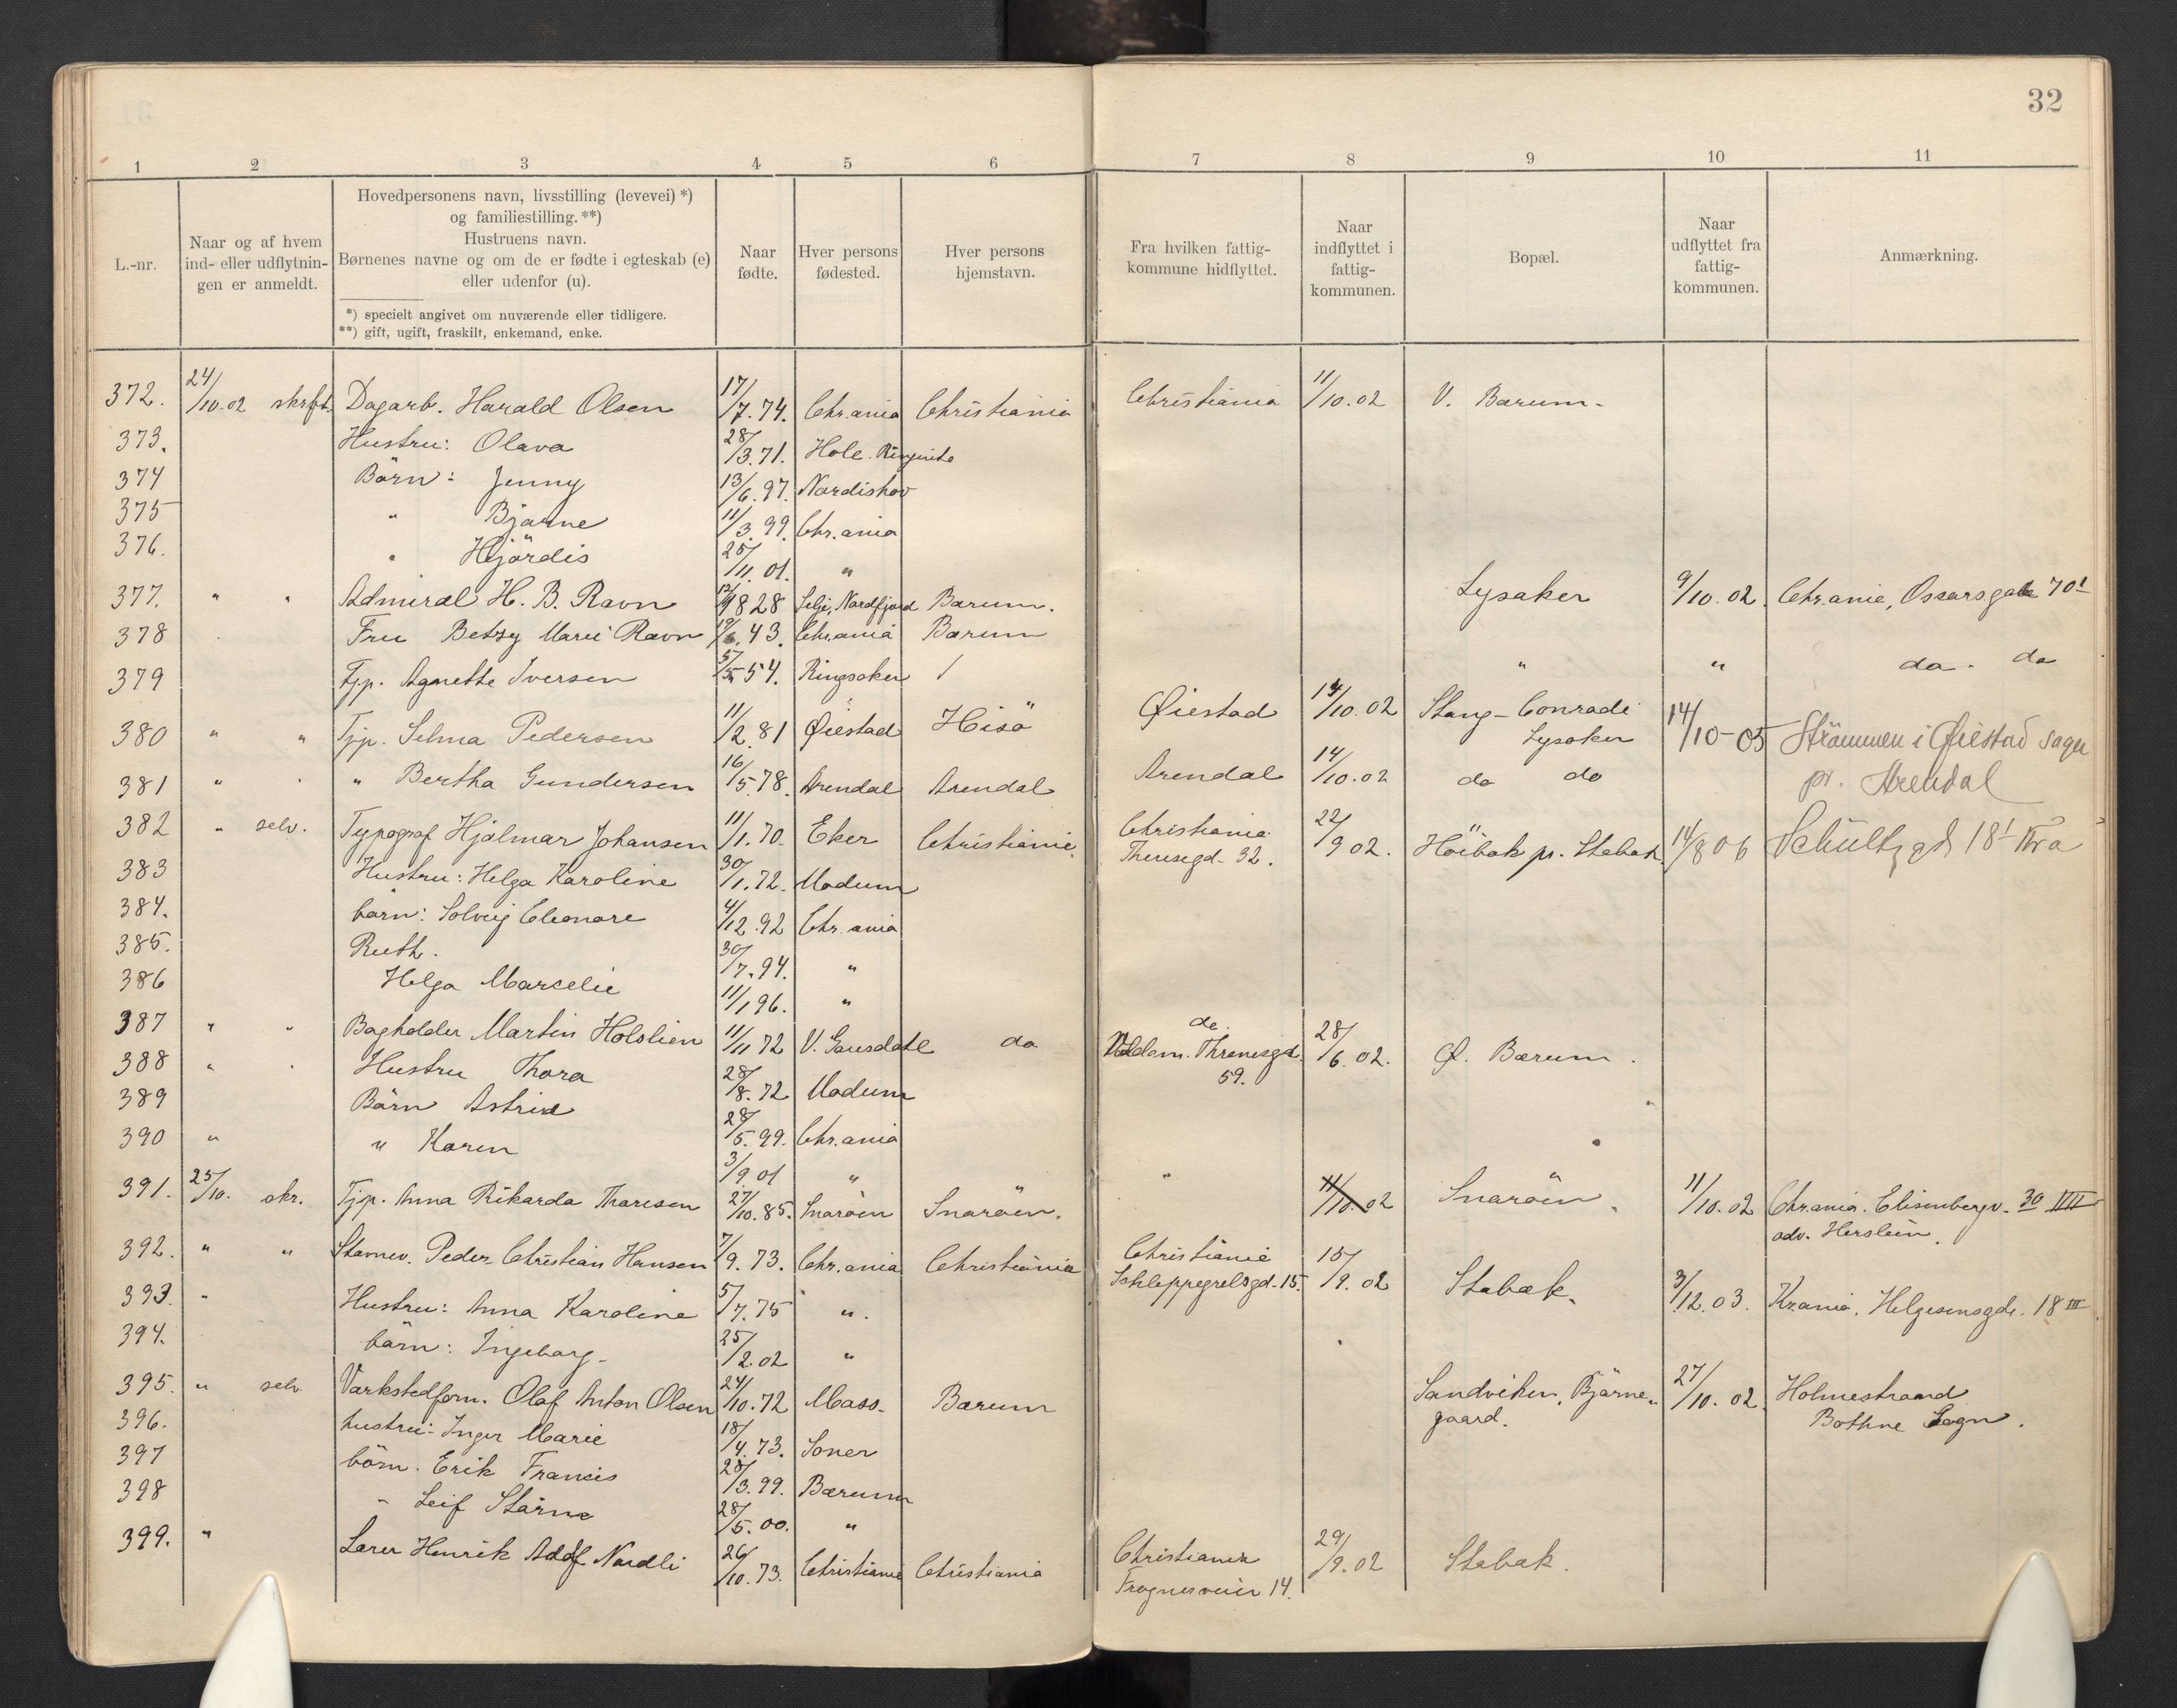 32
1 2 3 4 5 6 7 8 9 10 11
L.-nr.
Naar og af hvem
ind- eller udflytnin-
gen er anmeldt.
Hovedpersonens navn, livsstilling (levevei) *)
og familiestilling. **)
Hustruens navn.
Børnenes navne og om de er fødte i egteskab (e)
eller udenfor (u).
*) specielt angivet om nuværende eller tidligere.
**) gift, ugift, fraskilt, enkemand, enke.
Naar
fødte.
Hver persons
fødested.
Hver persons
hjemstavn.
Fra hvilken fattig-
kommune hidflyttet.
Naar
indflyttet i
fattig-
kommunen.
Bopæl.
Naar
udflyttet fra
fattig-
kommunen.
Anmærkning.
372. 24/10.02 skrftl. Dagarb. Harald Olsen 17/7.74. Chr.ania Christiania Christiania 11/10.02 V. Bærum.
373. Hustru: Olava 28/3.71. Hole. Ringerike
374 Börn: Jenny 13/6.97. Nordishov
375 " Bjarne 11/3.99. Chr.ania
376. " Hjördis 25/11.01. "
377. " " Admiral H. B. Ravn 828 Selje, Nordfjord Bærum. Lysaker 9/10.02. Chr.ania, Oscarsgate 70
378 Fru Betsy Marie Ravn 6.43. Chr.ania Bærum
379 Tjp. Agnette Iversen 5/5 54. Ringsaker / " " do. do
380 " " Tjp. Selma Pedersen 11/2.81 Øiestad Hisö Øiestad 14/10.02 Stang-Conradi
Lysaker 14/10-05 Strömmen i Øiestad sogn
381 " " " Bertha Gundersen 16/5.78. Arendal Arendal Arendal 14/10.02 do do pr. Arendal
382 " selv. Typograf Hjalmar Johansen 11/1.70. Eker Christiania Christiania 22/9 02. Höibak pr. Stabæk 14/8 06 Schultzgd 18
Theresegd. 32.
383 Hustru: Helga Karoline 30/1.72. Modum
384. barn: Solveig Eleonore 4/12.92 Chr.ania
385. Ruth. 30/7.94. "
386 Helga Marcelie 11/1 96. "
387 " " Bogholder Martin Holslien 11/11 72 V. Gausdal do do.
Thranesgd. 28/6.02. Ø. Bærum.
59.
388 " " Hustru Thora 28/8.72 Modum
389 Börn Astrid 28/5.99. Chr.ania
390 " " Karen 3/9.01 "
391. 25/10. skr. Tjp. Anna Rikarda Thoresen 27/10.85. Snaröen Snaröen. " 11/10.02 Snaröen. 11/10.02 Chr.ania. Elisenbergv. 30 IIII
adv. Herslein.
392. " " Peder Christian Hansen 7/9.73. Chr.ania Christiania Christiania 15/9.02 Stabæk. 3/12.03. Krania, Helgesensgd. 18 III
Schleppegrelsgd. 15.
393. " Hustru: Anna Karoline 5/7.75 ".
394. barn: Ingeborg. 25/2.02 "
395. " selv. Værkstedform. Olaf Anton Olsen 24/10.72 Moss. Bærum Sandviken, Bjärne- 27/10.02. Holmestrand
gaard. Bothne Sogn.
396. hustru: Inger Marie 18/4.73. Soner
397 börn. Erik Francis 28/3.99. Bærum
398 " Leif Stärne 28/5.00. "
399. " Lærer Henrik Adolf Nordli 26/10.73. Christiania Christiania Christiania 29/9.02 Stabæk.
Frognerveien 14.